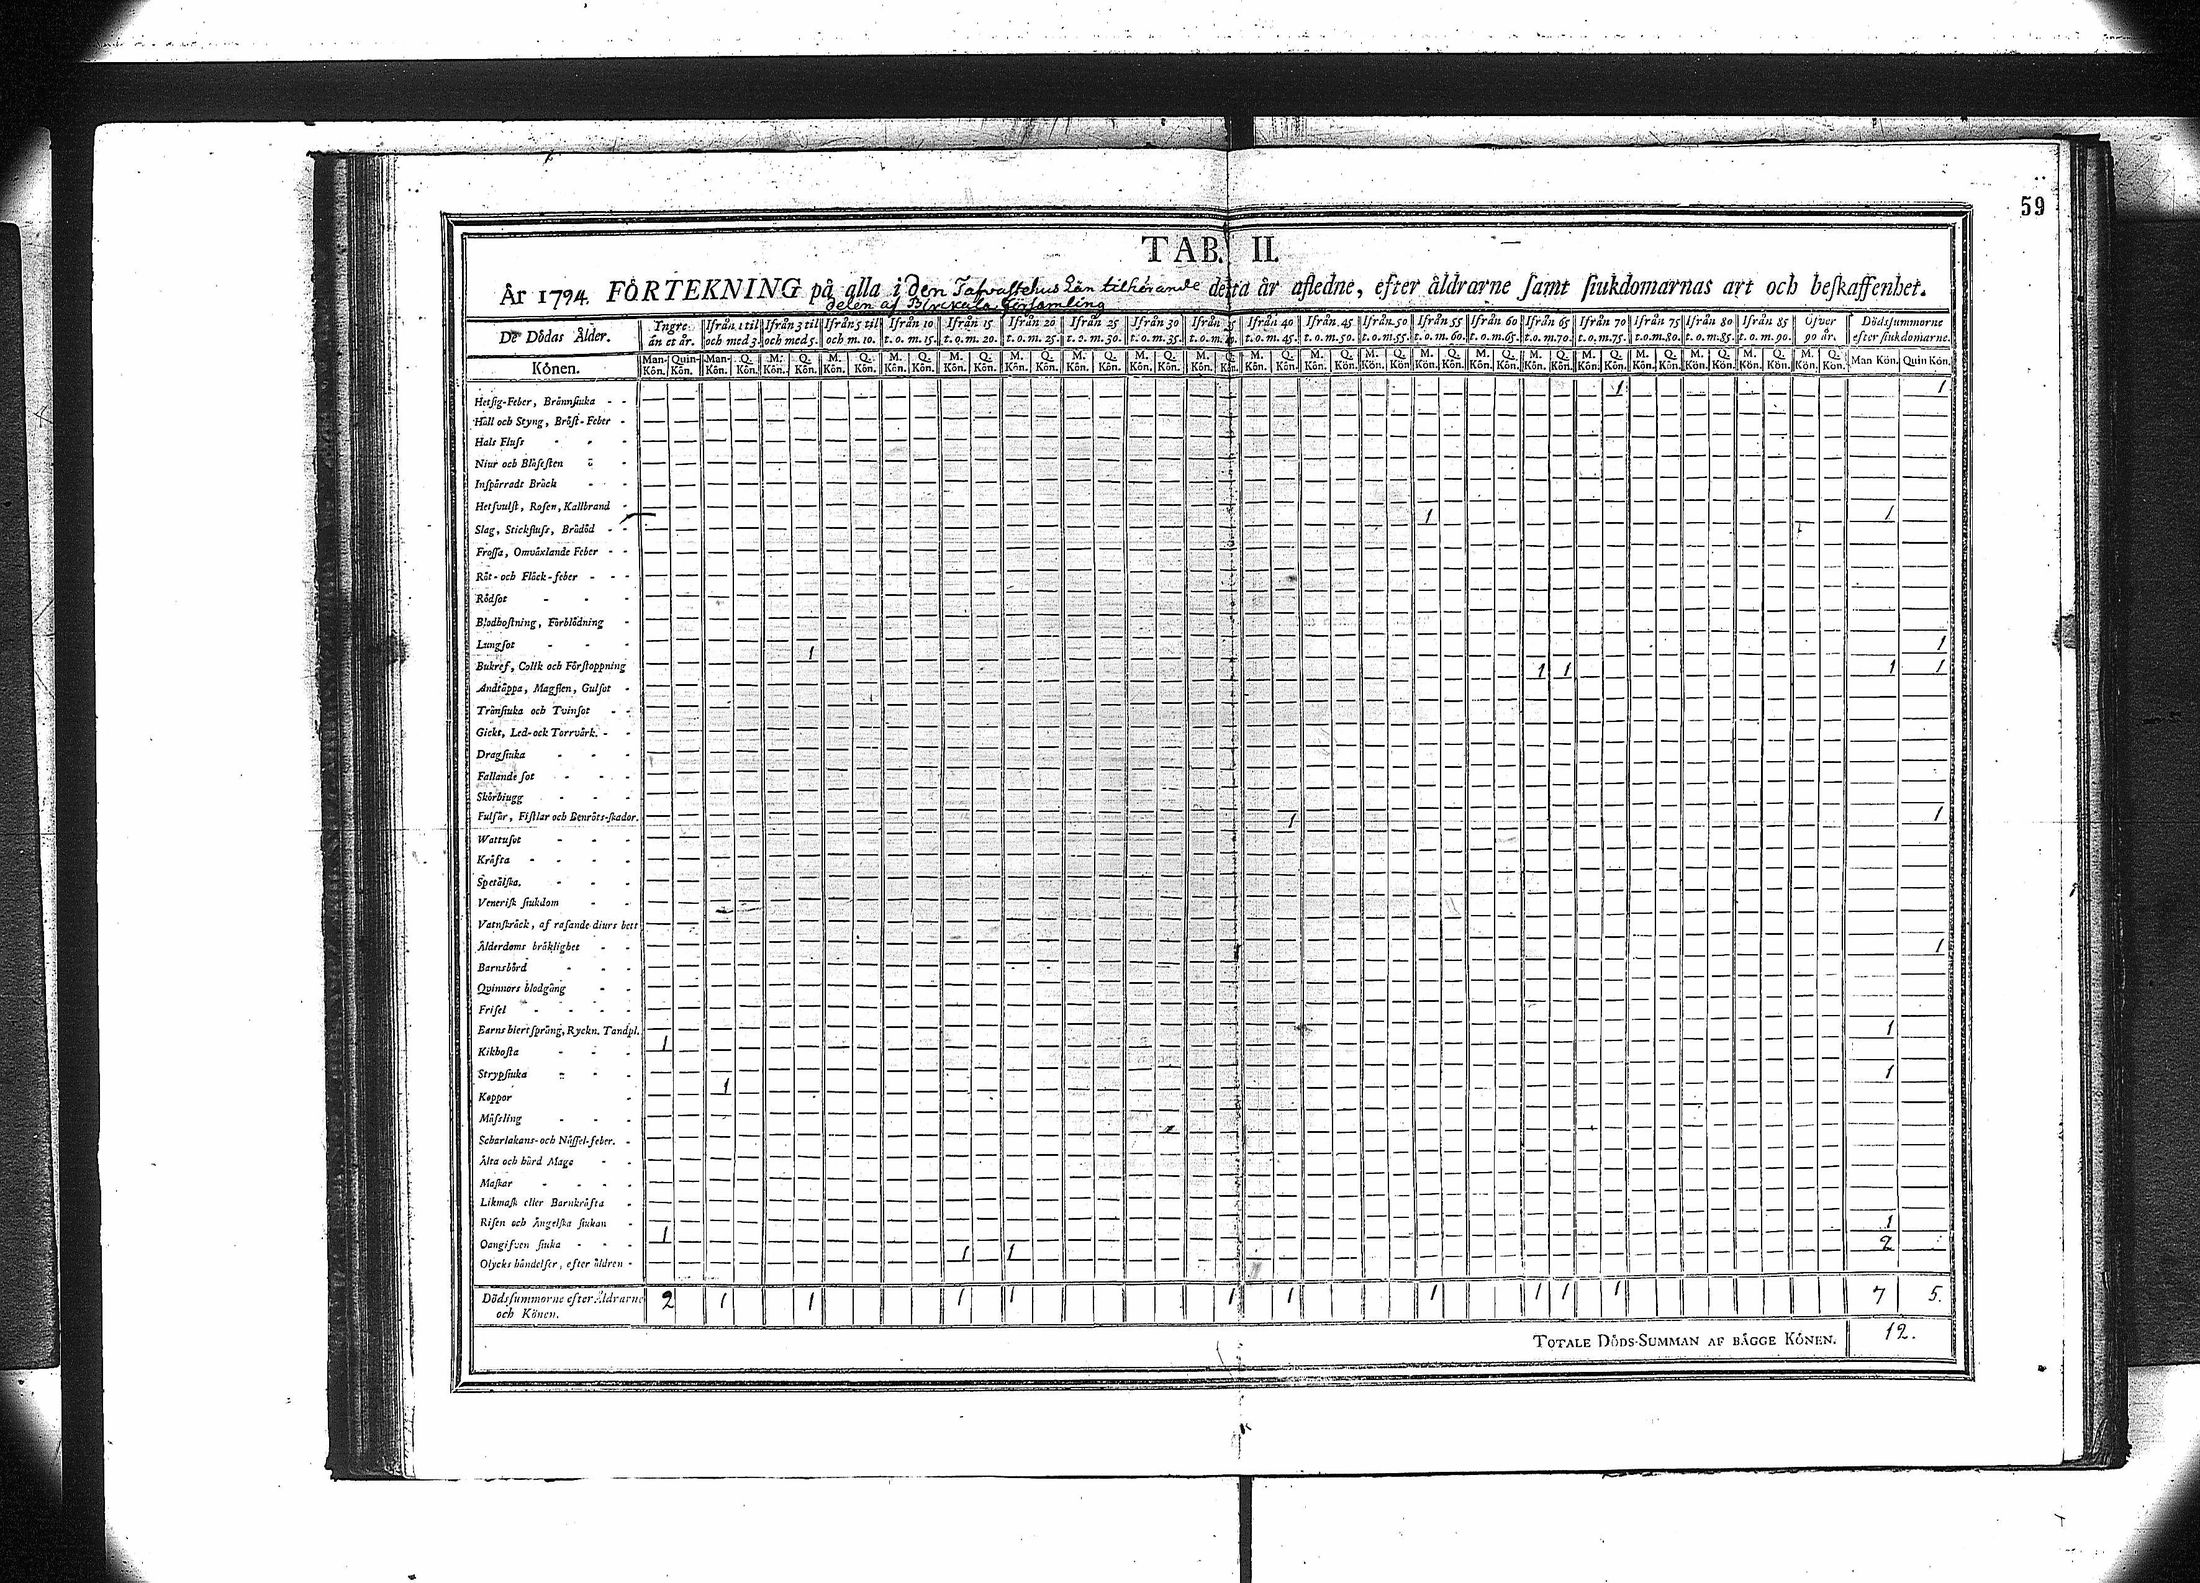 59
TAB. II.
År 1794. FÖRTEKNING på alla i den Tafvastehus Län tilhörande detta år afledne, efter åldrarne samt siukdomarnas art och beskaffenhet.
delen af Birckala Församling
De Dödas Ålder. Yngre än et år. Ifrån 1 til och med 3. Ifrån 3 til och med 5. Ifrån 5 til och m. 10. Ifrån 10 t. o. m. 15. Ifrån 15 t. o. m. 20. Ifrån 20 t. o. m. 25. Ifrån 25 t. o. m. 30. Ifrån 30 t. o. m. 35. Ifrån 35 t. o. m. 40. Ifrån 40 t. o. m. 45. Ifrån 45 t. o. m. 50. Ifrån 50 t. o. m. 55. Ifrån 55 t. o. m. 60. Ifrån 60 t. o. m. 65. Ifrån 65 t. o. m. 70. Ifrån 70 t. o. m. 75. Ifrån 75 t. o. m. 80. Ifrån 80 t. o. m. 85. Ifrån 85 t. o. m. 90. Öfver 90 år. Dödssummorne efter siukdomarne.
Könen. Man-Kön. Quin-Kön. Man-Kön. Q. Kön. M. Kön. Q. Kön. M. Kön. Q. Kön. M. Kön. Q. Kön. M. Kön. Q. Kön. M. Kön. Q. Kön. M. Kön. Q. Kön. M. Kön. Q. Kön. M. Kön. Q. Kön. M. Kön. Q. Kön. M. Kön. Q. Kön. M. Kön. Q. Kön. M. Kön. Q. Kön. M. Kön. Q. Kön. M. Kön. Q. Kön. M. Kön. Q. Kön. M. Kön. Q. Kön. M. Kön. Q. Kön. M. Kön. Q. Kön. M. Kön. Q. Kön. Man Kön. Quin Kön.
Hetsig-Feber, Brännsiuka 1 1
Håll och Styng, Bröst-Feber
Hals Fluss
Niur och Blåsesten
Inspärradt Bråck
Hetsvulst, Rosen, Kallbrand
Slag, Stickfluss, Brådöd 1 1
Frossa, Omväxlande Feber
Röt- och Fläck-feber
Rödsot
Blodhostning, Förblödning
Lungsot 1 1
Bukref, Colik och Förstoppning 1 1 1 1
Andtäppa, Magsten, Gulsot
Trånsiuka och Tvinsot
Gickt, Led- ock Torrvärk.
Dragsiuka
Fallande sot
Skörbiugg
Fulsår, Fistlar och Benröts-skador. 1 1
Wattusot
Kräfta
Spetälska.
Venerisk siukdom
Vatnskräck, af rasande diurs bett
Ålderdoms bräklighet 1
Barnsbörd
Qvinnors blodgång
Frisel
Barns hiertsprång, Ryckn. Tandpl. 1
Kikhosta 1
Strypsiuka 1
Koppor 1
Mässling
Scharlakans- och Nässel-feber.
Älta och hård Mage
Maskar
Likmask eller Barnkräfta
Risen och Ängelska siukan 1
Oangifven siuka 1 2
Olycks händelser, efter åldren 1 1
Dödssummorne efter Åldrarne och Könen. 2 1 1 1 1 1 1 1 1 1 1 7 5.
TOTALE DÖDS-SUMMAN AF BÄGGE KÖNEN. 12.